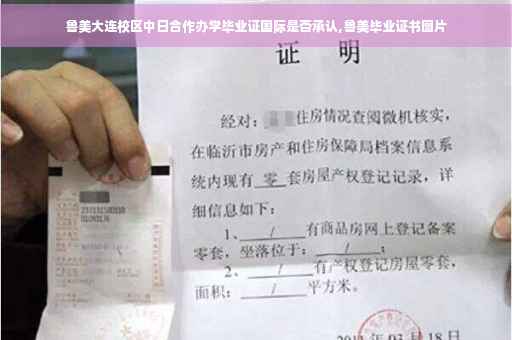 鲁美大连校区中日合作办学毕业证国际是否承认,鲁美毕业证书图片
证 明
经对: 住房情况查阅微机核实,
在临沂市房产和住房保障局档案信息系
统内现有 零 套房屋产权登记记录, 详
细信息如下:
1、 / 有商品房网上登记备案
零套, 坐落位于: / ;
2、 / 有产权登记房屋零套,
面积: / 平方米。
03月18日